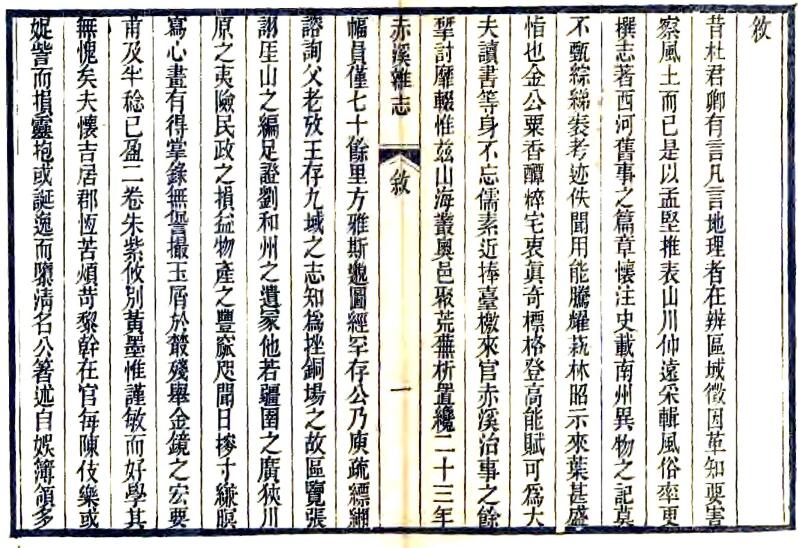 敘
昔杜君卿有言凡言地理者在辨區域徵因革知要害
察風土而已是以孟堅推表山川仲遠采輯風俗率更
撰志著西河舊事之篇章懷注史載南州異物之記莫
不甄綜綈袠考迹佚聞用能騰耀蓺林昭示來葉甚盛
恉也金公粟香醰粹宅衷眞奇標格登高能賦可爲大
夫讀書等身不忘儒素近捧臺檄來官赤溪治事之餘
揅討靡輟惟兹山海叢奧邑聚荒蕪析置纔二十三年
赤溪雜志 敘 一
幅員僅七十餘里方雅斯邈圖經罕存公乃庚疏縹緗
諮詢父老攷王存九域之志知爲挫銅場之故區覽張
詡厓山之編足證劉和州之遺冢他若疆圉之廣狹川
原之夷險民政之損益物產之豐窳咫聞日槮寸緣瞑
寫心畫有得掌錄無訾撮玉屑於叢殘舉金鏡之宏要
甫及半稔已盈二卷朱紫攸別黃墨惟謹敏而好學其
無愧矣夫懷吉居郡恆苦煩苛黎幹在官每陳伎樂或
娖訾而損靈抱或誕逸而隳清名公箸述自娛簿領多